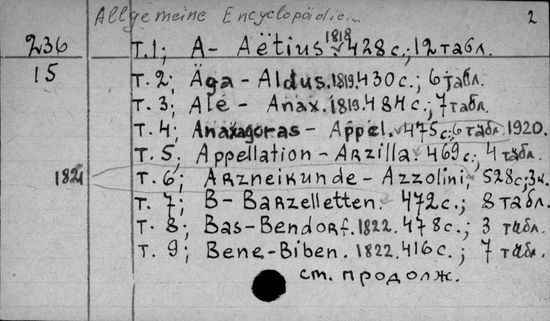 Allgemeine Encyclopädie... 2
236 Т.1; A - Aëtius 1818 428 с.; 12 табл.
15 Т. 2; Äga - Aldus. 1819. 430 с.; 6 табл.
Т. 3; Ale - Anax. 1819. 484 с.; 7 табл.
Т. 4; Anaxagoras - Appel. 475 с; 6 табл. 1920.
Т. 5; Appellation - Arzilla. 469 с.; 4 табл.
182 Т. 6; Arzneikunde - Azzolini, 528 с; 3 к.
Т. 7; B - Barzelletten. 472 с.; 8 табл.
Т. 8; Bas - Bendorf. 1822. 478 с.; 3 табл.
Т. 9; Bene - Biben. 1822. 416 с.; 7 табл.
см. продолж.